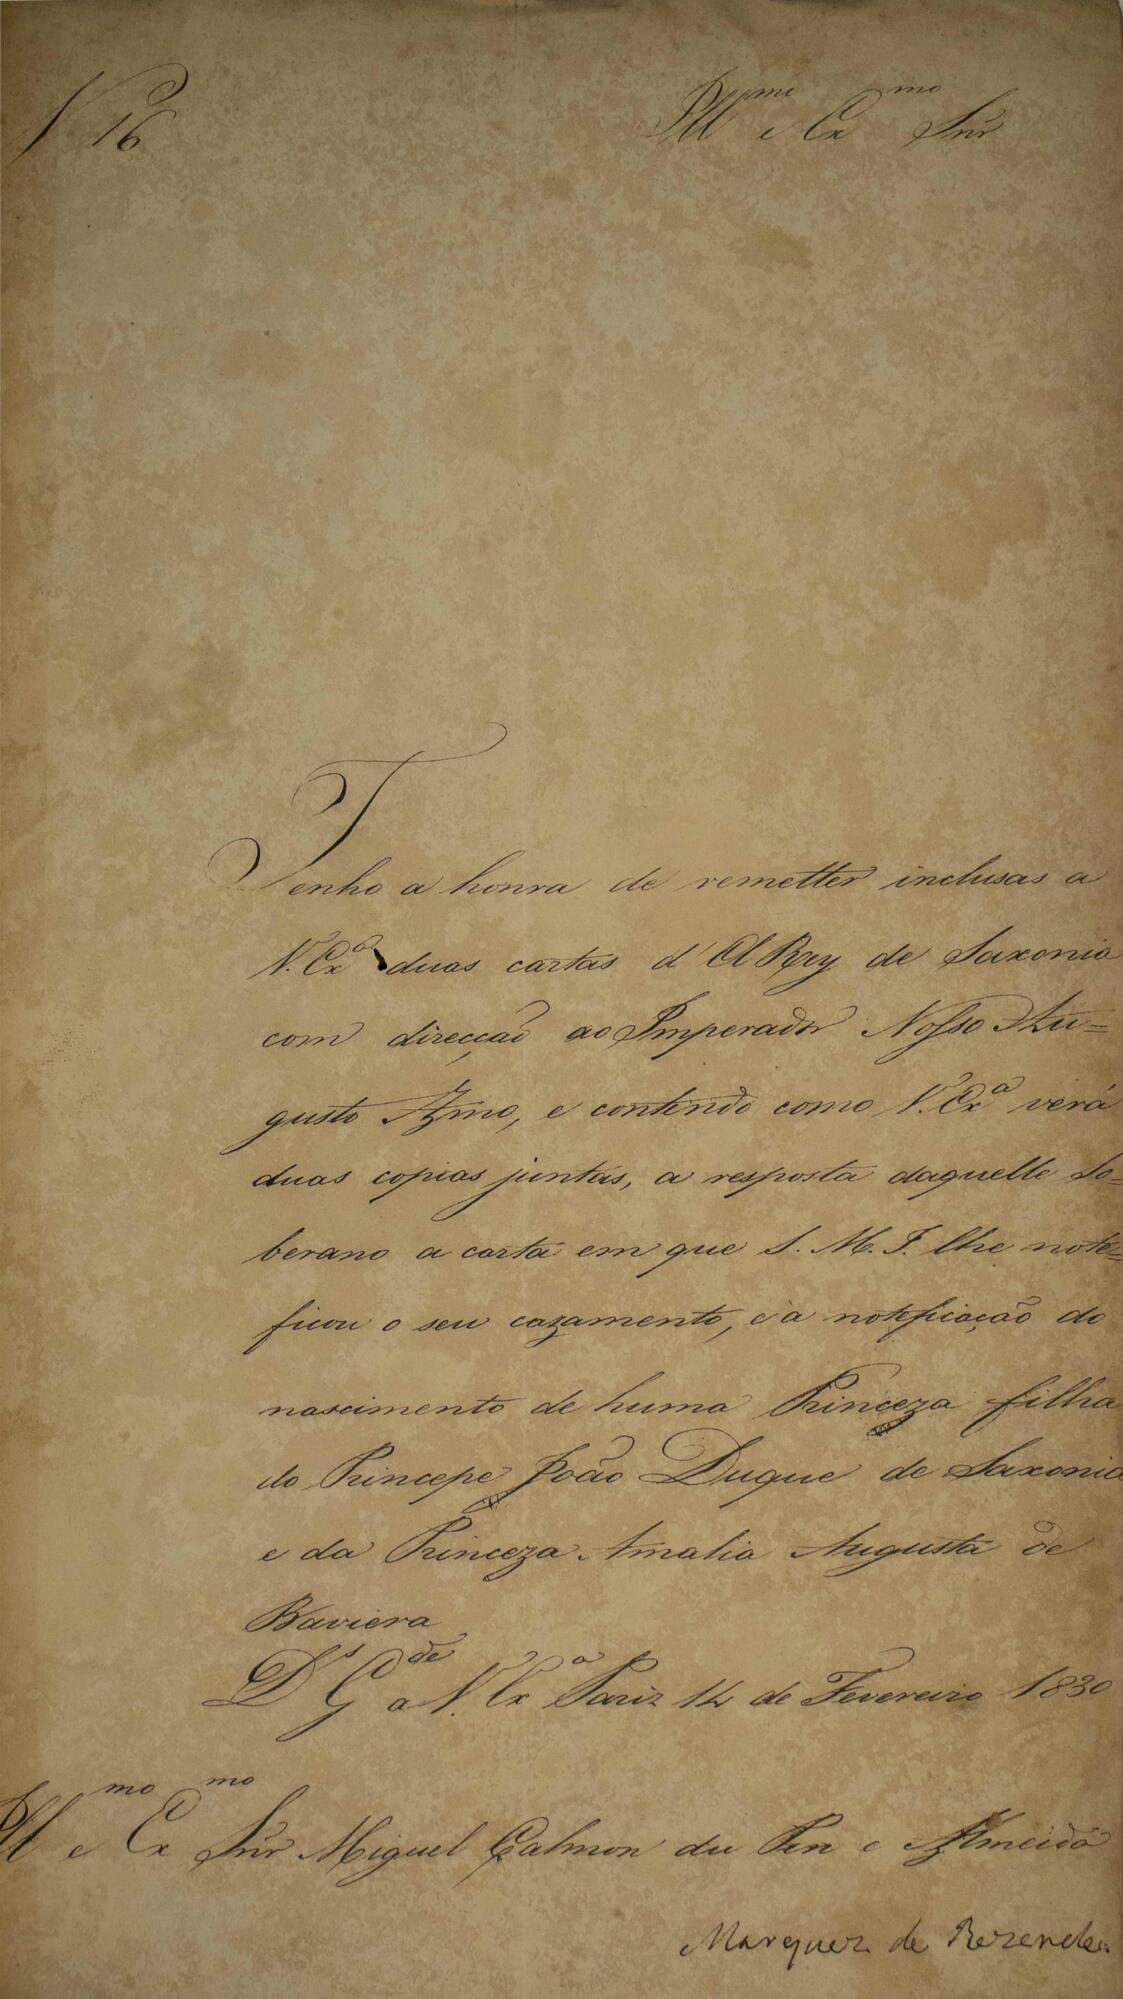 N 16
Ill^mo e Ex^mo Snr
Tenho a honra de remetter inclusas a
V. Ex^a duas cartas d'El Rey de Saxonia
com direcção ao Imperador Nosso Au=
gusto Amo, e contendo como V. Ex^a verá
duas copias juntas, a resposta daquelle So=
berano a carta em que S. M. I. lhe note=
ficou o seu cazamento, e a noteficação do
nascimento de huma Princeza filha
do Princepe João Duque de Saxonia
e da Princeza Amalia Augusta de
Baviera
D^s G^de a V. Ex^a Pariz 14 de Fevereiro 1830
Ill^mo e Ex^mo Snr Miguel Calmon du Pin e Almeida
Marquez de Rezende.